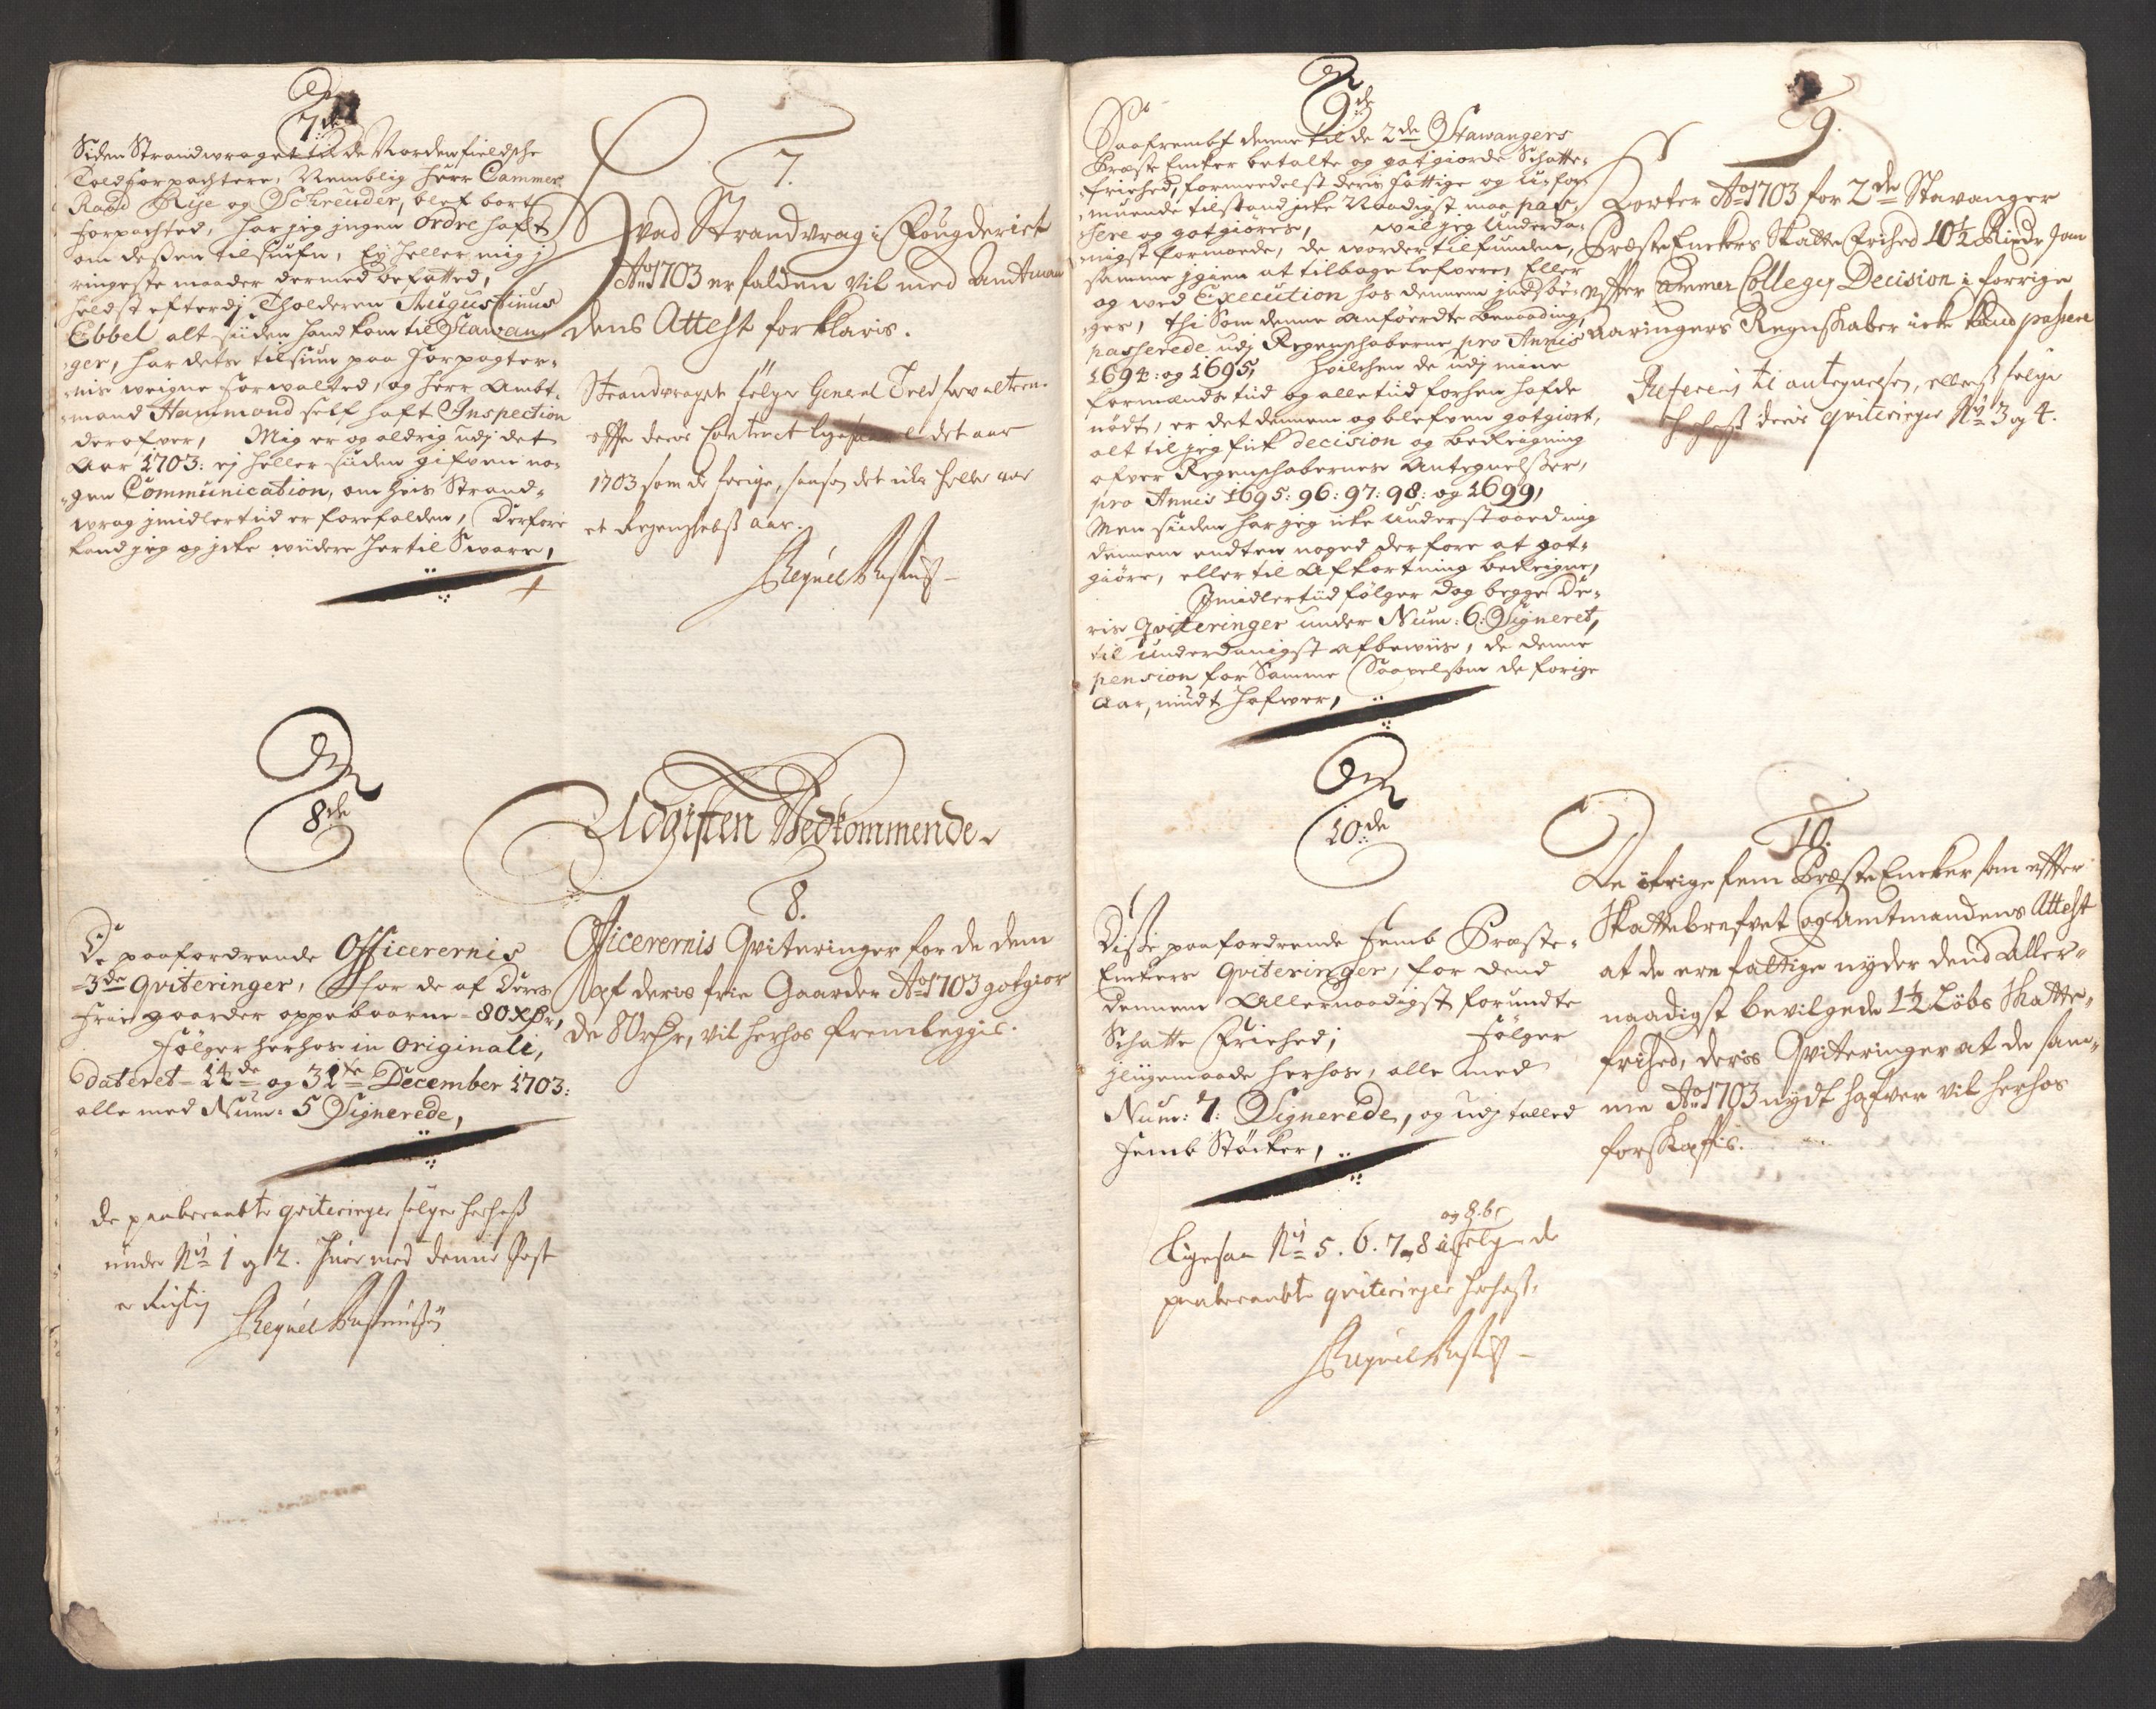 Den
7de
Siden Strandwraget til de Nordenfieldsche
Toldforpachtere, Nemblig Herr Cammer
Raad Rije og Schreuder, blef bort
forpachted, har jeg jngen ordre haft
om deßen tilsiufn, Ey heller mig j
ringeste maader dermed befatted,
heldst efterdj Tholderen Augustinus
Ebbel alt siiden hand kom til Stawan-
ger, har dette tilsiun paa forpagter-
nis weigne forwalted, og Herr Ambt-
mand Hammond self haft Inspection
derofver, Mig er og aldrig udj det
Aar 1703: ej heller siiden gifven no-
gen Communication, om hvis Strand-
wrag jmidlertiid er forefalden, Derfore
kand jeg og jcke wiidere hertil Sware,
7.
Hvad Strandvrag i Fougderiet
Ao 1703 er falden vil med Amtman
dens Attest forklaris.
Strandvraget følger General Told forvalteren
efter deris Contract det aar
1703 som de forige, saasom det icke heller var
et Regenskabß aar.
Den
8de
De paafordrende Officerernis
3de Qviteringer, for de af Deris
frie gaarder oppebaarne 80 Rdr,
Følger herhos in originali,
Dateret 14de og 31te December 1703:
alle med Num: 5 Signerede,
de paaberaabte qviteringer følger herhoß
under No 1 og 2. huor med denne Post
er Rigtig
Udgiften Vedkommende.
8.
Officerernis Qviteringer for de dem
af deris frie Gaarder Ao 1703 gotgior
de 80 rdr, vil herhos fremleggis.
Den
9de
Saafrembt denne til de 2de Stawangers
Præste Encker betalte og gotgiorde Schatte-
friehed, formedelst deris fattige og ufor-
muende tilstand jcke Naadigst maa pas-
sere og gotgiøres, wil jeg Underda-
nigst formoede, de worder tilfunden,
samme jgien at tilbage lefvere, Eller
og wed Execution hos dennem jndsøe-
ges, thi Som denne anførdte benaading,
passerede udj Regenschaberne pro Annis
1694: og 1695, hvilchen de udj mine
Formænds tiid og alletiid forhen hafde
nødt, er det dennem og blefven gotgiort,
alt til jeg fick decision og bedragning
ofver Regenschabernes Antegnelßer,
pro Annis 1695: 96: 97: 98: og 1699,
Men siiden har jeg icke understaaed mig
dennem endten noged derfore at got-
giøre, eller til Afkortning bereigne,
Jmidlertiid følger dog begge De-
ris Qviteringer under Num: 6: Signeret,
til underdanigst afbewiis, de denne
pension for Samme Saavelsom de forige
Aar, nudt hafwer,
9.
Korter Ao 1703 for 2de Stavanger
Præste Enckers Skatte Frihed 10½ Rixdr som
effter Cammer Collegij Decision i forrige
Aaringers Regnskaber icke kand passere
Refereris til antegnelsen, ellerß følger
herhoß deris qviteringer No 3 og 4.
Den
10de
Disse paafordrende Femb Præste-
Enckers Qviteringer, for dend
dennem Allernaadigst forundte
Schatte Friehed; Følger
jliigemaade herhos, alle med
Num: 7: Signerede, og udj talled
Femb Støcker,
og 8.b
Ligesaa No 5. 6. 7. 8 følger de
paaberaabte qviteringer herhoß.
10.
De øfrige fem Præste Encker som effter
Skattebrefvet og Amtmandens Attest
at de ere fattige nyder dend Aller-
naadigst bevilgede 1½ Løbs Skatte-
frihed, deris Qviteringer at de sam-
me Ao 1703 nydt hafver vil herhos
forskaffis.